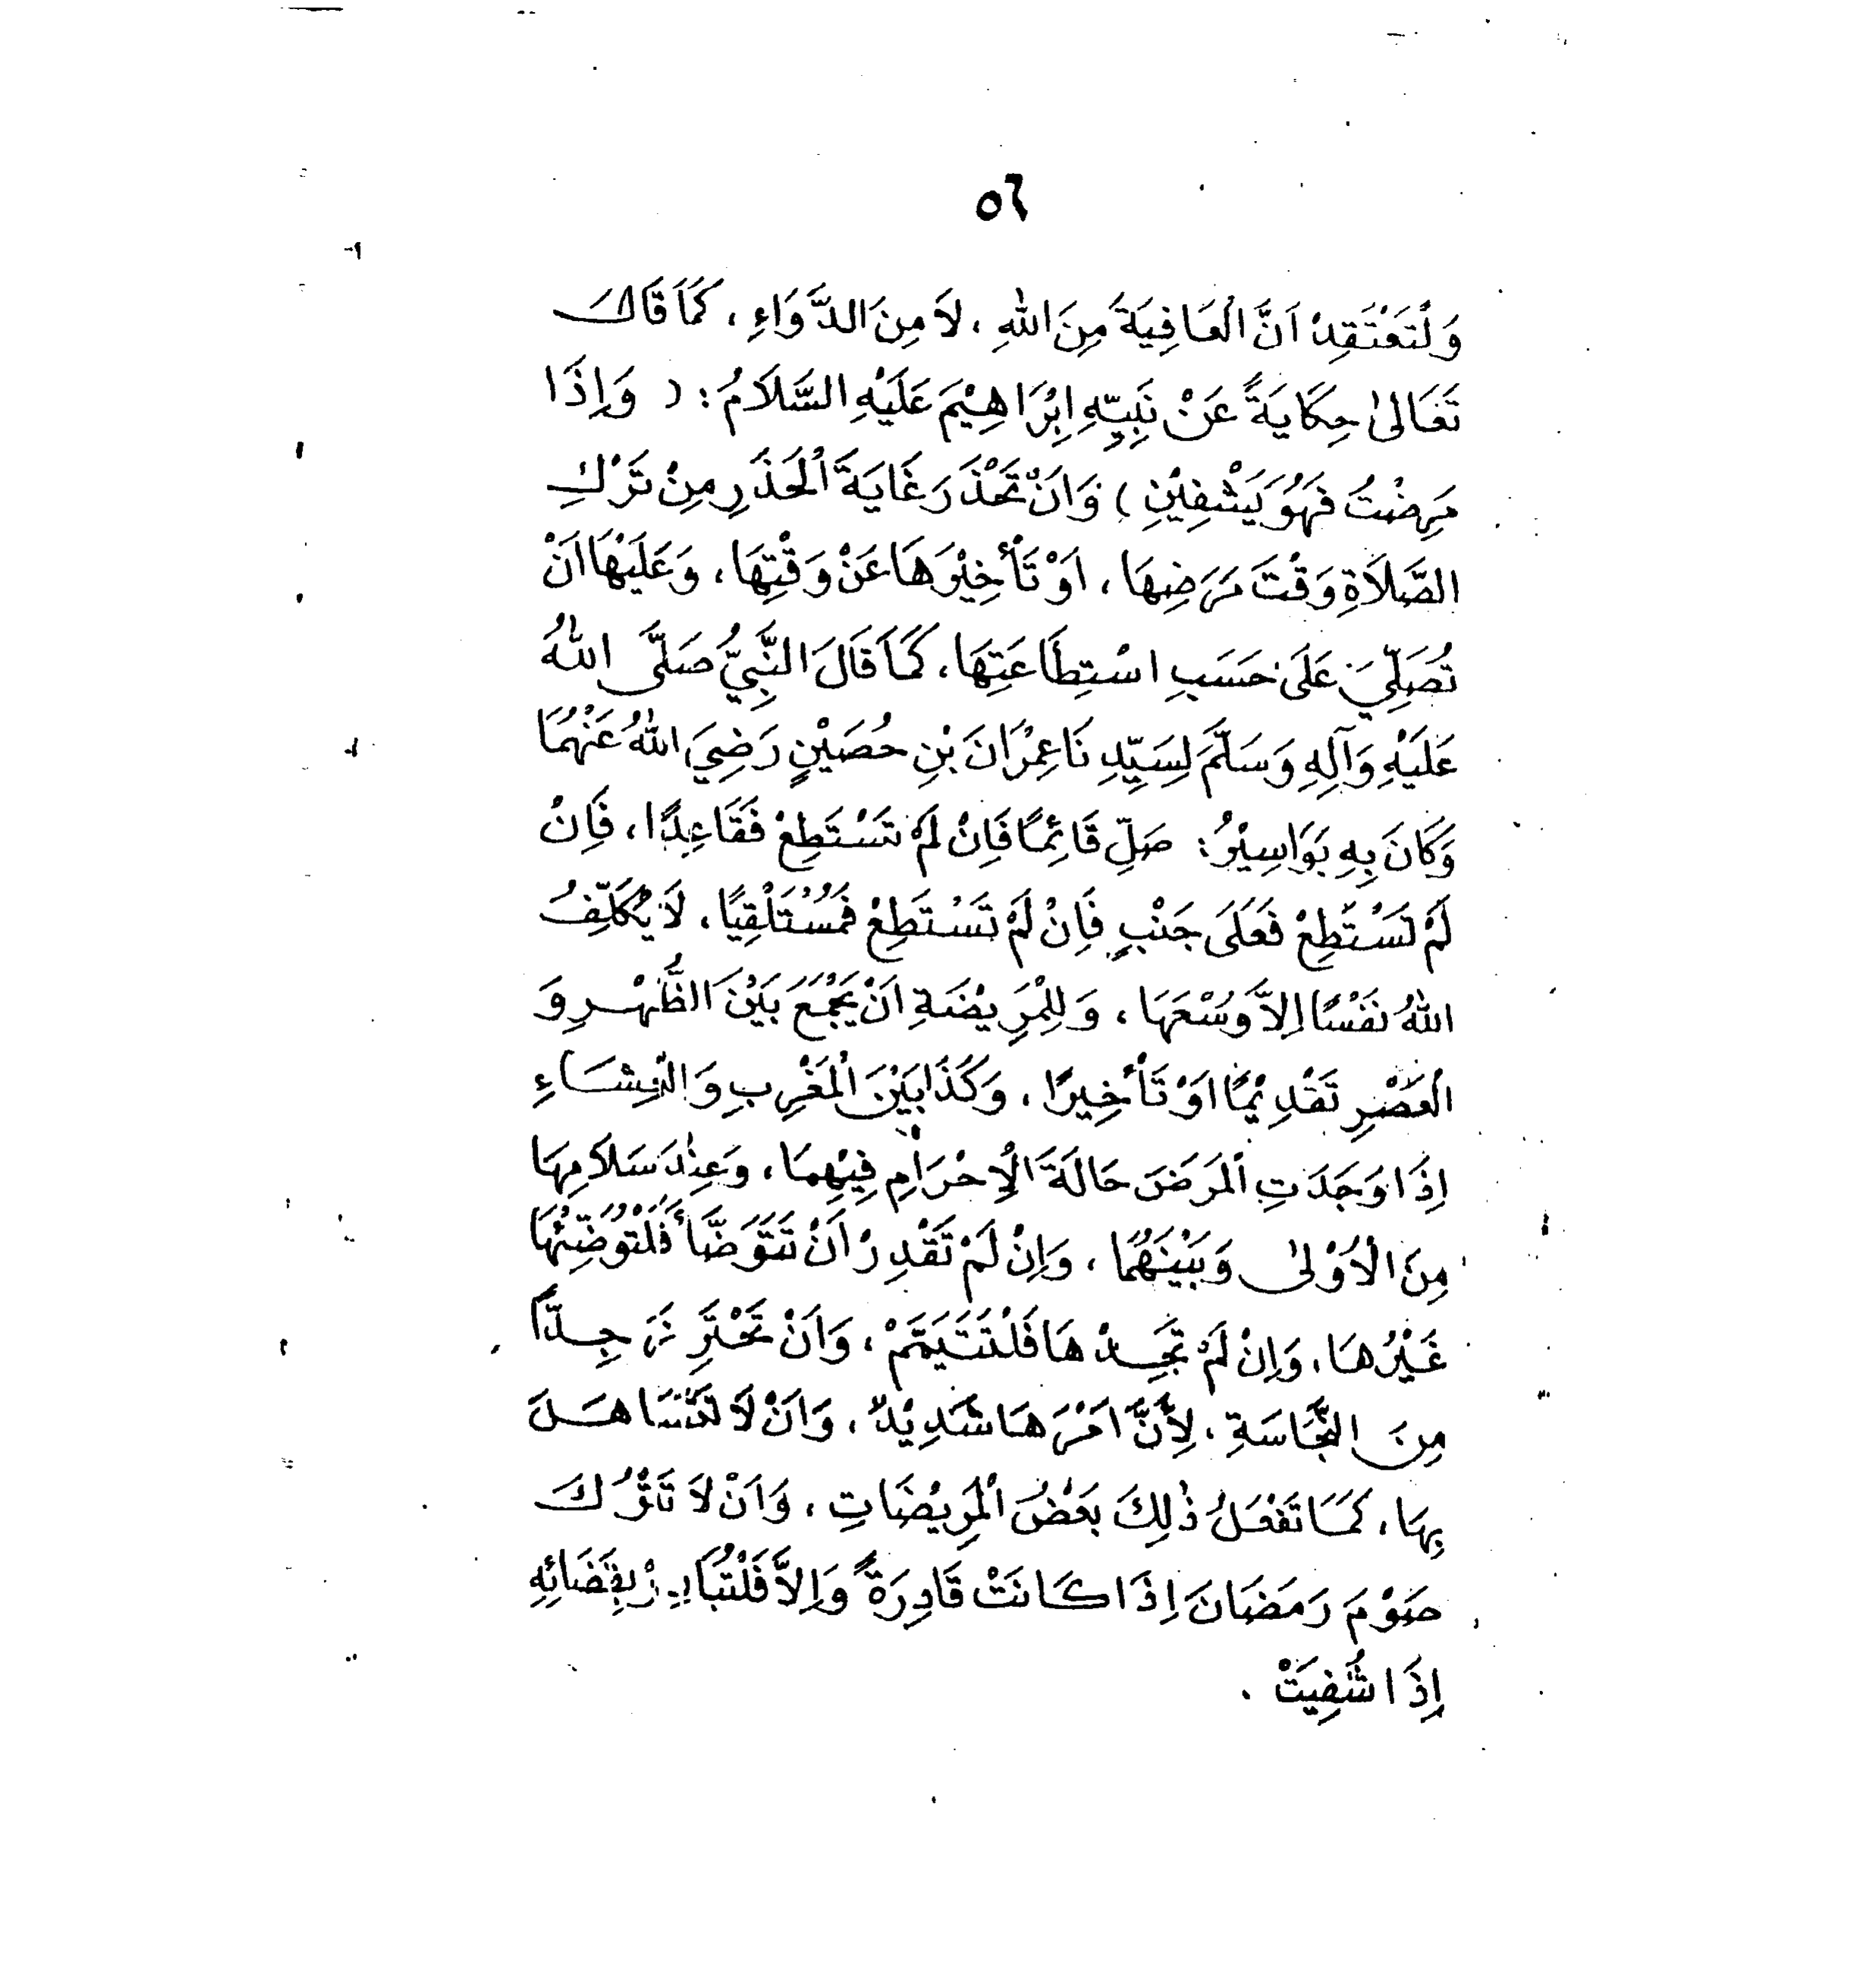 ٥٦
وَلْتَعْتَقِدْ اَنَّ الْعَافِيَةَ مِنَ اللهِ ، لاَ مِنَ الدَّوَاءِ ، كَمَا قَالَ
تَعَالىٰ حِكَايَةً عَنْ نَبِيِّهِ اِبْرَاهِيْمَ عَلَيْهِ السَّلاَمُ : ( وَاِذَا
مَرِضْتُ فَهُوَ يَشْفِيْنِ ) وَاَنْ تَحْذَرَ غَايَةَ الْحَذَرِ مِنْ تَرْكِ
الصَّلاَةِ وَقْتَ مَرَضِهَا ، اَوْ تَأْخِيْرِهَا عَنْ وَقْتِهَا ، وَعَلَيْهَا اَنْ
تُصَلِّيَ عَلَى حَسَبِ اسْتِطَاعَتِهَا ، كَمَا قَالَ النَّبِيُّ صَلَّى اللهُ
عَلَيْهِ وَآلِهِ وَسَلَّمَ لِسَيِّدِنَا عِمْرَانَ بْنِ حُصَيْنٍ رَضِيَ اللهُ عَنْهُمَا
وَكَانَ بِهِ بَوَاسِيْرُ : صَلِّ قَائِمًا فَاِنْ لَمْ تَسْتَطِعْ فَقَاعِدًا ، فَاِنْ
لَمْ تَسْتَطِعْ فَعَلَى جَنْبٍ فَاِنْ لَمْ تَسْتَطِعْ فَمُسْتَلْقِيًا ، لاَ يُكَلِّفُ
اللهُ نَفْسًا اِلاَّ وُسْعَهَا ، وَلِلْمَرِيْضَةِ اَنْ تَجْمَعَ بَيْنَ الظُّهْرِ وَ
الْعَصْرِ تَقْدِيْمًا اَوْ تَأْخِيرًا ، وَكَذَا بَيْنَ الْمَغْرِبِ وَالْعِشَاءِ
اِذَا وَجَدَتِ الْمَرَضَ حَالَةَ الْاِحْرَامِ فِيْهِمَا ، وَعِنْدَ سَلاَمِهَا
مِنَ الْاُوْلىٰ وَبَيْنَهُمَا ، وَاِنْ لَمْ تَقْدِرْ اَنْ تَتَوَضَّأَ فَلْتُوَضِّئْهَا
غَيْرُهَا ، وَاِنْ لَمْ تَجِدْ هَا فَلْتَتَيَمَّمْ ، وَاَنْ تَحْتَرِزَ جِدًّا
مِنَ النَّجَاسَةِ ، لِأَنَّ اَمْرَهَا شَدِيْدٌ ، وَاَنْ لاَ تَتَسَاهَلَ
بِهَا ، كَمَا تَفْعَلُ ذٰلِكَ بَعْضُ الْمَرِيْضَاتِ ، وَاَنْ لاَ تَتْرُكَ
صَوْمَ رَمَضَانَ اِذَا كَانَتْ قَادِرَةً وَاِلاَّ فَلْتُبَادِرْ بِقَضَائِهِ
اِذَا شُفِيَتْ .